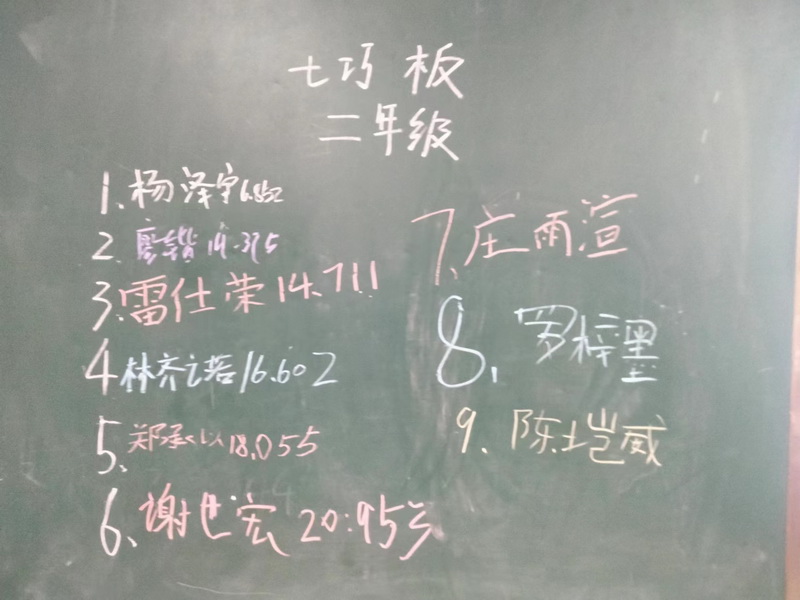 七巧板
二年级
1.杨泽宇6.852
2.廖锴14.375
3.雷仕荣14.711
4林齐诺16.602
5.郑承以18.055
6.谢也宏20:95
7.庄雨渲
8.罗梓墨
9.陈垲威